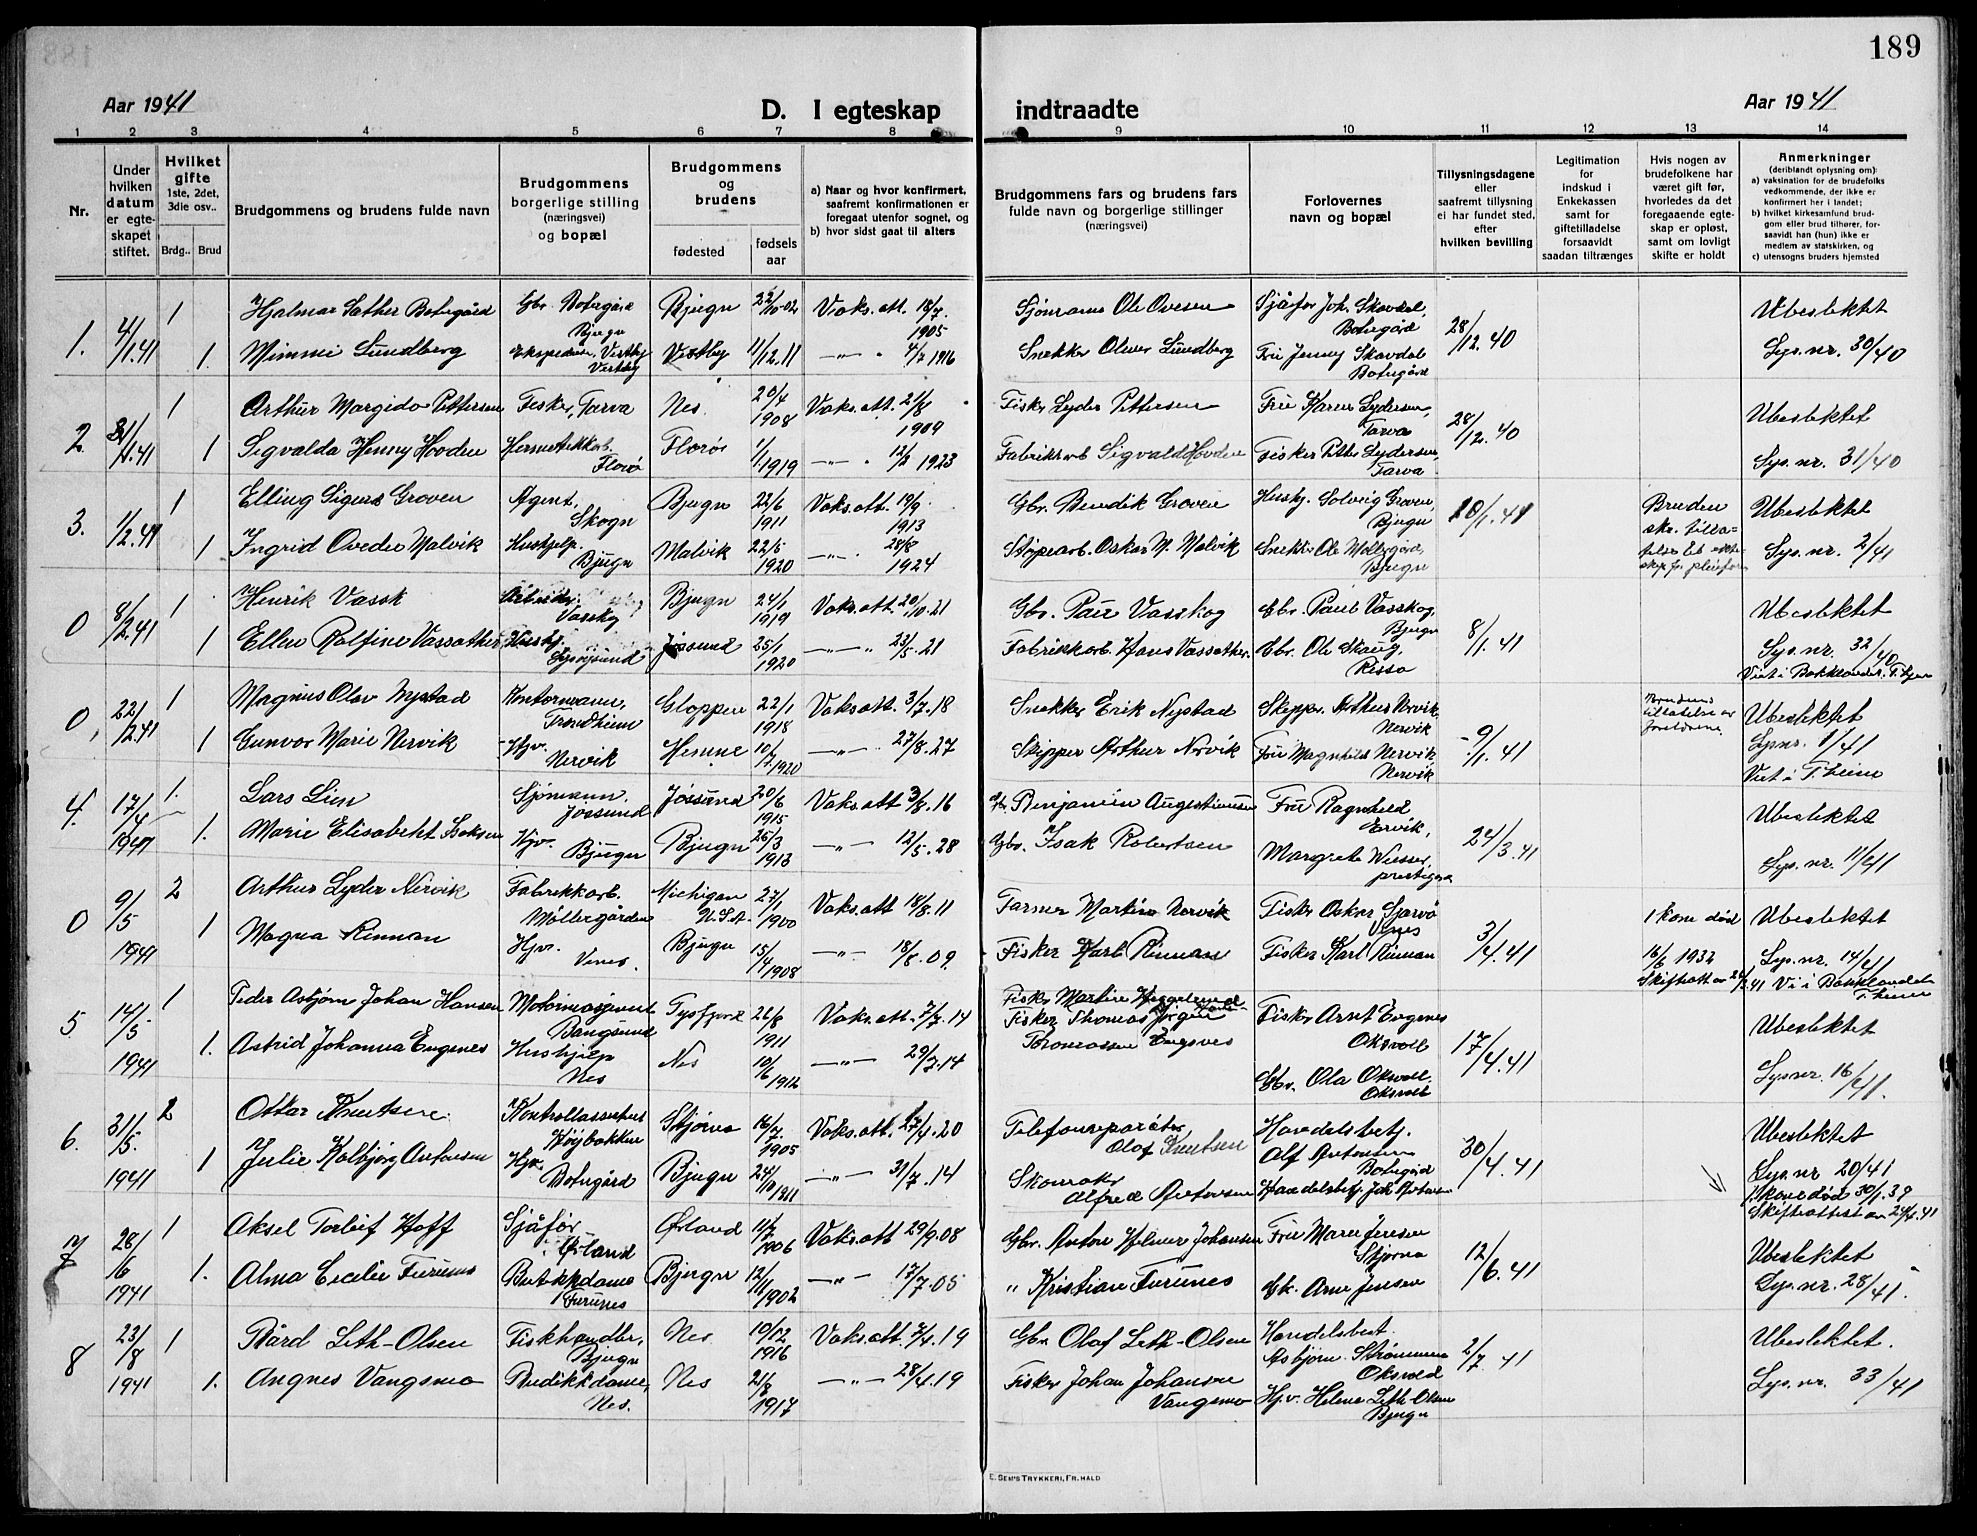 189
Aar 1941
D. I egteskap indtraadte
Aar 1941
1 2 3 4 5 6 7 8 9 10 11 12 13 14
Nr.
Under hvilken datum er egteskapet stiftet.
Hvilket gifte 1ste, 2det, 3die osv..
Brdg.. Brud
Brudgommens og brudens fulde navn
Brudgommens borgerlige stilling (næringsvei) og bopæl
Brudgommens og brudens
fødested
fødsels aar
a) Naar og hvor konfirmert, saafremt konfirmationen er foregaat utenfor sognet, og
b) hvor sidst gaat til alters
Brudgommens fars og brudens fars fulde navn og borgerlige stillinger (næringsvei)
Forlovernes navn og bopæl
Tillysningsdagene eller saafremt tillysning ei har fundet sted, efter hvilken bevilling
Legitimation for indskud i Enkekassen samt for giftetilladelse forsaavidt saadan tiltrænges
Hvis nogen av brudefolkene har været gift før, hvorledes da det foregaaende egteskap er opløst, samt om lovligt skifte er holdt
Anmerkninger (deriblandt oplysning om):
a) vaksination for de brudefolks vedkommende, der ikke er konfirmert her i landet;
b) hvilket kirkesamfund brudgom eller brud tilhører, forsaavidt han (hun) ikke er medlem av statskirken, og
c) utensogns bruders hjemsted
1. 4/1.41 1 Hjalmar Sæther Botngård Gbr. Botngård Bjugn Bjugn 22/10-02 Vaks.att. 18/7. 1905 Sjømann Ole Ovesen Sjåfør Joh. Skavdal, Botngård 28/12.40 Ubeslektet
1. Mimmi Lundberg Vestby Vestby 11/12.11 4/7 1916 Snekker Oliver Lundberg Fru Jenny Skavdal Botngård Lys.nr. 30/40
2. 1 Arthur Margido Pettersen Fisker, Tarva Nes. 20/4 1908 Vaks.att. 21/8 1909 Fisker Lyder Pettersen Fru Karen Lydersen, Tarva 28/12.40 Ubeslektet
1 Sigvalda Henny Hovden Florø Florø 1/1.1919 12/2 1923 Fabrikkarb. Sigvald Hovden Fisker Petter Lydersen, Tarva Lys.nr. 31/40
3. 1/2.41 1 Elling Sigurd Groven Agent, Skogn Bjugn 22/6 1911 Vaks.att. 19/9 1913 Gbr. Bendik Groven Huskj. Solveig Groven, Bjugn 20/1.41 Bruden Ubeslektet
1 Ingrid Ovedie Malvik Hushjelp. Bjugn Malvik 22/5 1920 28/8 1924 Støpearb. Oskar M. Malvik Snekker Ole Møllegård, Bjugn Lys.nr. 2/41
0 8/2.41 1 Henrik Vassk Vasskog Bjugn 24/1 1919 Vaks.att. 20/10.21 Gbr. Paul Vasskog Gbr. Paul Vasskog, Bjugn 8/1.41 Ubeslektet
1 Ellen Rolfine Vassæther Jøssund 25/1 1920 23/5.21 Fabrikkarb. Hans Vassæther. Gbr. Ole Skaug, Rissa Lys.nr. 32/40
0, 22/2.41 1 Magnus Olav Nystad Kontormann, Trondheim Gloppen 22/1 1918 Vaks.att. 3/7.18 Snekker Erik Nystad Skipper Arthur Nervik, Nervik 9/1.41 Brudens tillatelse av foreldrene Ubeslektet
1 Gunvor Marie Nervik Hjv. Nervik Hemne 10/7 1920 27/8.27 Skipper Arthur Nervik Fru Magnhild Nervik Nervik Lysnr. 1/41
Viet i T.heim
4. 17/4 1941 1. Lars Lien Sjømann, Jøssund Jøssund 20/6 1915 Vaks.att 3/8.16 Benjamin Augustinusen Fru Ragnhild Ervik, 24/3.41 Ubeslektet
1. Marie Elisabeht Isaksen Hjv. Bjugn Bjugn 25/3 1913 12/5.28 Gbr. Isak Robertsen Margrete Wiesser, Lys.nr. 11/41
0 9/5 1941 2 Arthur Lyder Nervik Fabrikkarb. Møllergården Michigan U.S.A. 27/1 1900 Vaks.att 18/8.11 Farmer Martin Nervik Fisker Oskar Sjørvø Vines 3/4.41 1 kone død Ubeslektet
1 Magna Rinnan Hjv. Vines. Bjugn 15/4 1908 18/8.09. Fisker Karl Rinnan Fisker Karl Rinnan 16/6 1932 Lys.nr. 14/41
5 14/5 1941 1 Peder Asbjørn Johan Hansen Bangsund Tysfjord 26/8 1911 Vaks.att. 7/7.14 Fisker Arnt Engenes Oksvoll 17/4.41 Ubeslektet
1. Astrid Johanna Engenes Hushjelp Nes Nes 10/6 1912 29/7.14 Gbr. Ola Oksvoll, Oksvoll Lysnr. 16/41.
6. 31/5. 1941 2 Ottar Knutsen. Kontrollassistent Høybakken Stjørna 16/7. 1905 Vaks.att. 27/4.20 Telefonreparatør, Olof Knutsen Handelsbetj. Alf Antonsen Botngård 30/4.41 Ubeslektet
1 Julie Kolbjørg Antonsen Hjv. Botngård Bjugn 24/10 1911 31/7.14 Skomaker Alfred Antonsen Handelsbetj. Lys.nr 20/41
1 kone død 30/1.39
Skifteattest av 24/4.41
7 28/6 1941 1 Aksel Torleif Hoff Sjåfør Ørland Ørland 11/7 1906 Vaks.att 29/9.08 Gbr. Anton Helmer Johansen Fru Marie Jensen Stjørna 12/6.41 Ubeslektet
1. Alma Cecilie Furunes Butikkdame Furunes Bjugn 12/11 1902 17/7.05 " Kristian Furunes Arne Jensen Lys.nr. 28/41.
8 23/8 1941 1 Bård Leth-Olsen Fiskhandler, Bjugn Nes 10/12 1916 Vaks.att 7/4.19 Gbr. Olaf Leth-Olsen Handelsbest. Asbjørn Strømmen Oksvold 2/7.41 Ubeslektet.
1. Angnes Vangsmo Butikkdame, Nes. Nes 21/8 1917 28/4.19 Fisker Johan Johansen Vangsmo Hjv. Helena Leth-Olsen Bjugn Lys.nr. 33/41
E. SEM'S TRYKKERI, FR.HALD